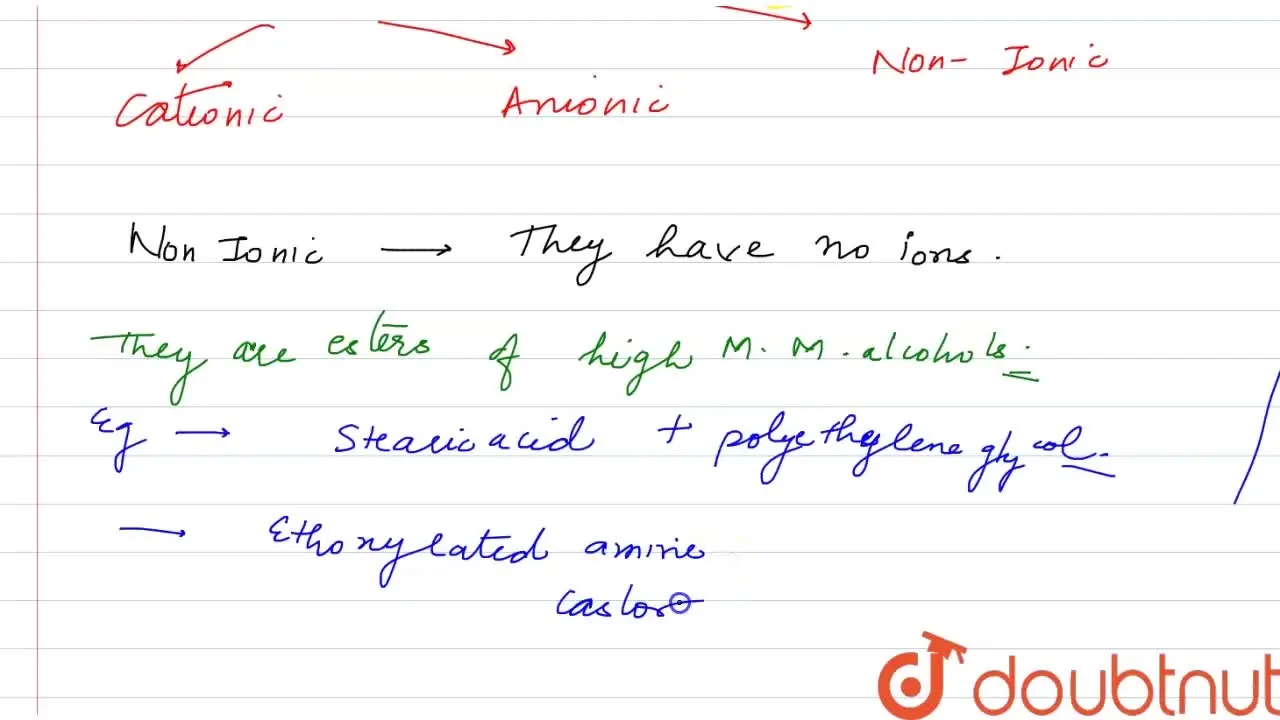 Non- Ionic
Cationic
Anionic
Non Ionic → They have no ions.
They are esters of high M. M. alcohols.
Eg → Stearic acid + polyethylene glycol.
→ Ethoxylated amine
Castor
doubtnut